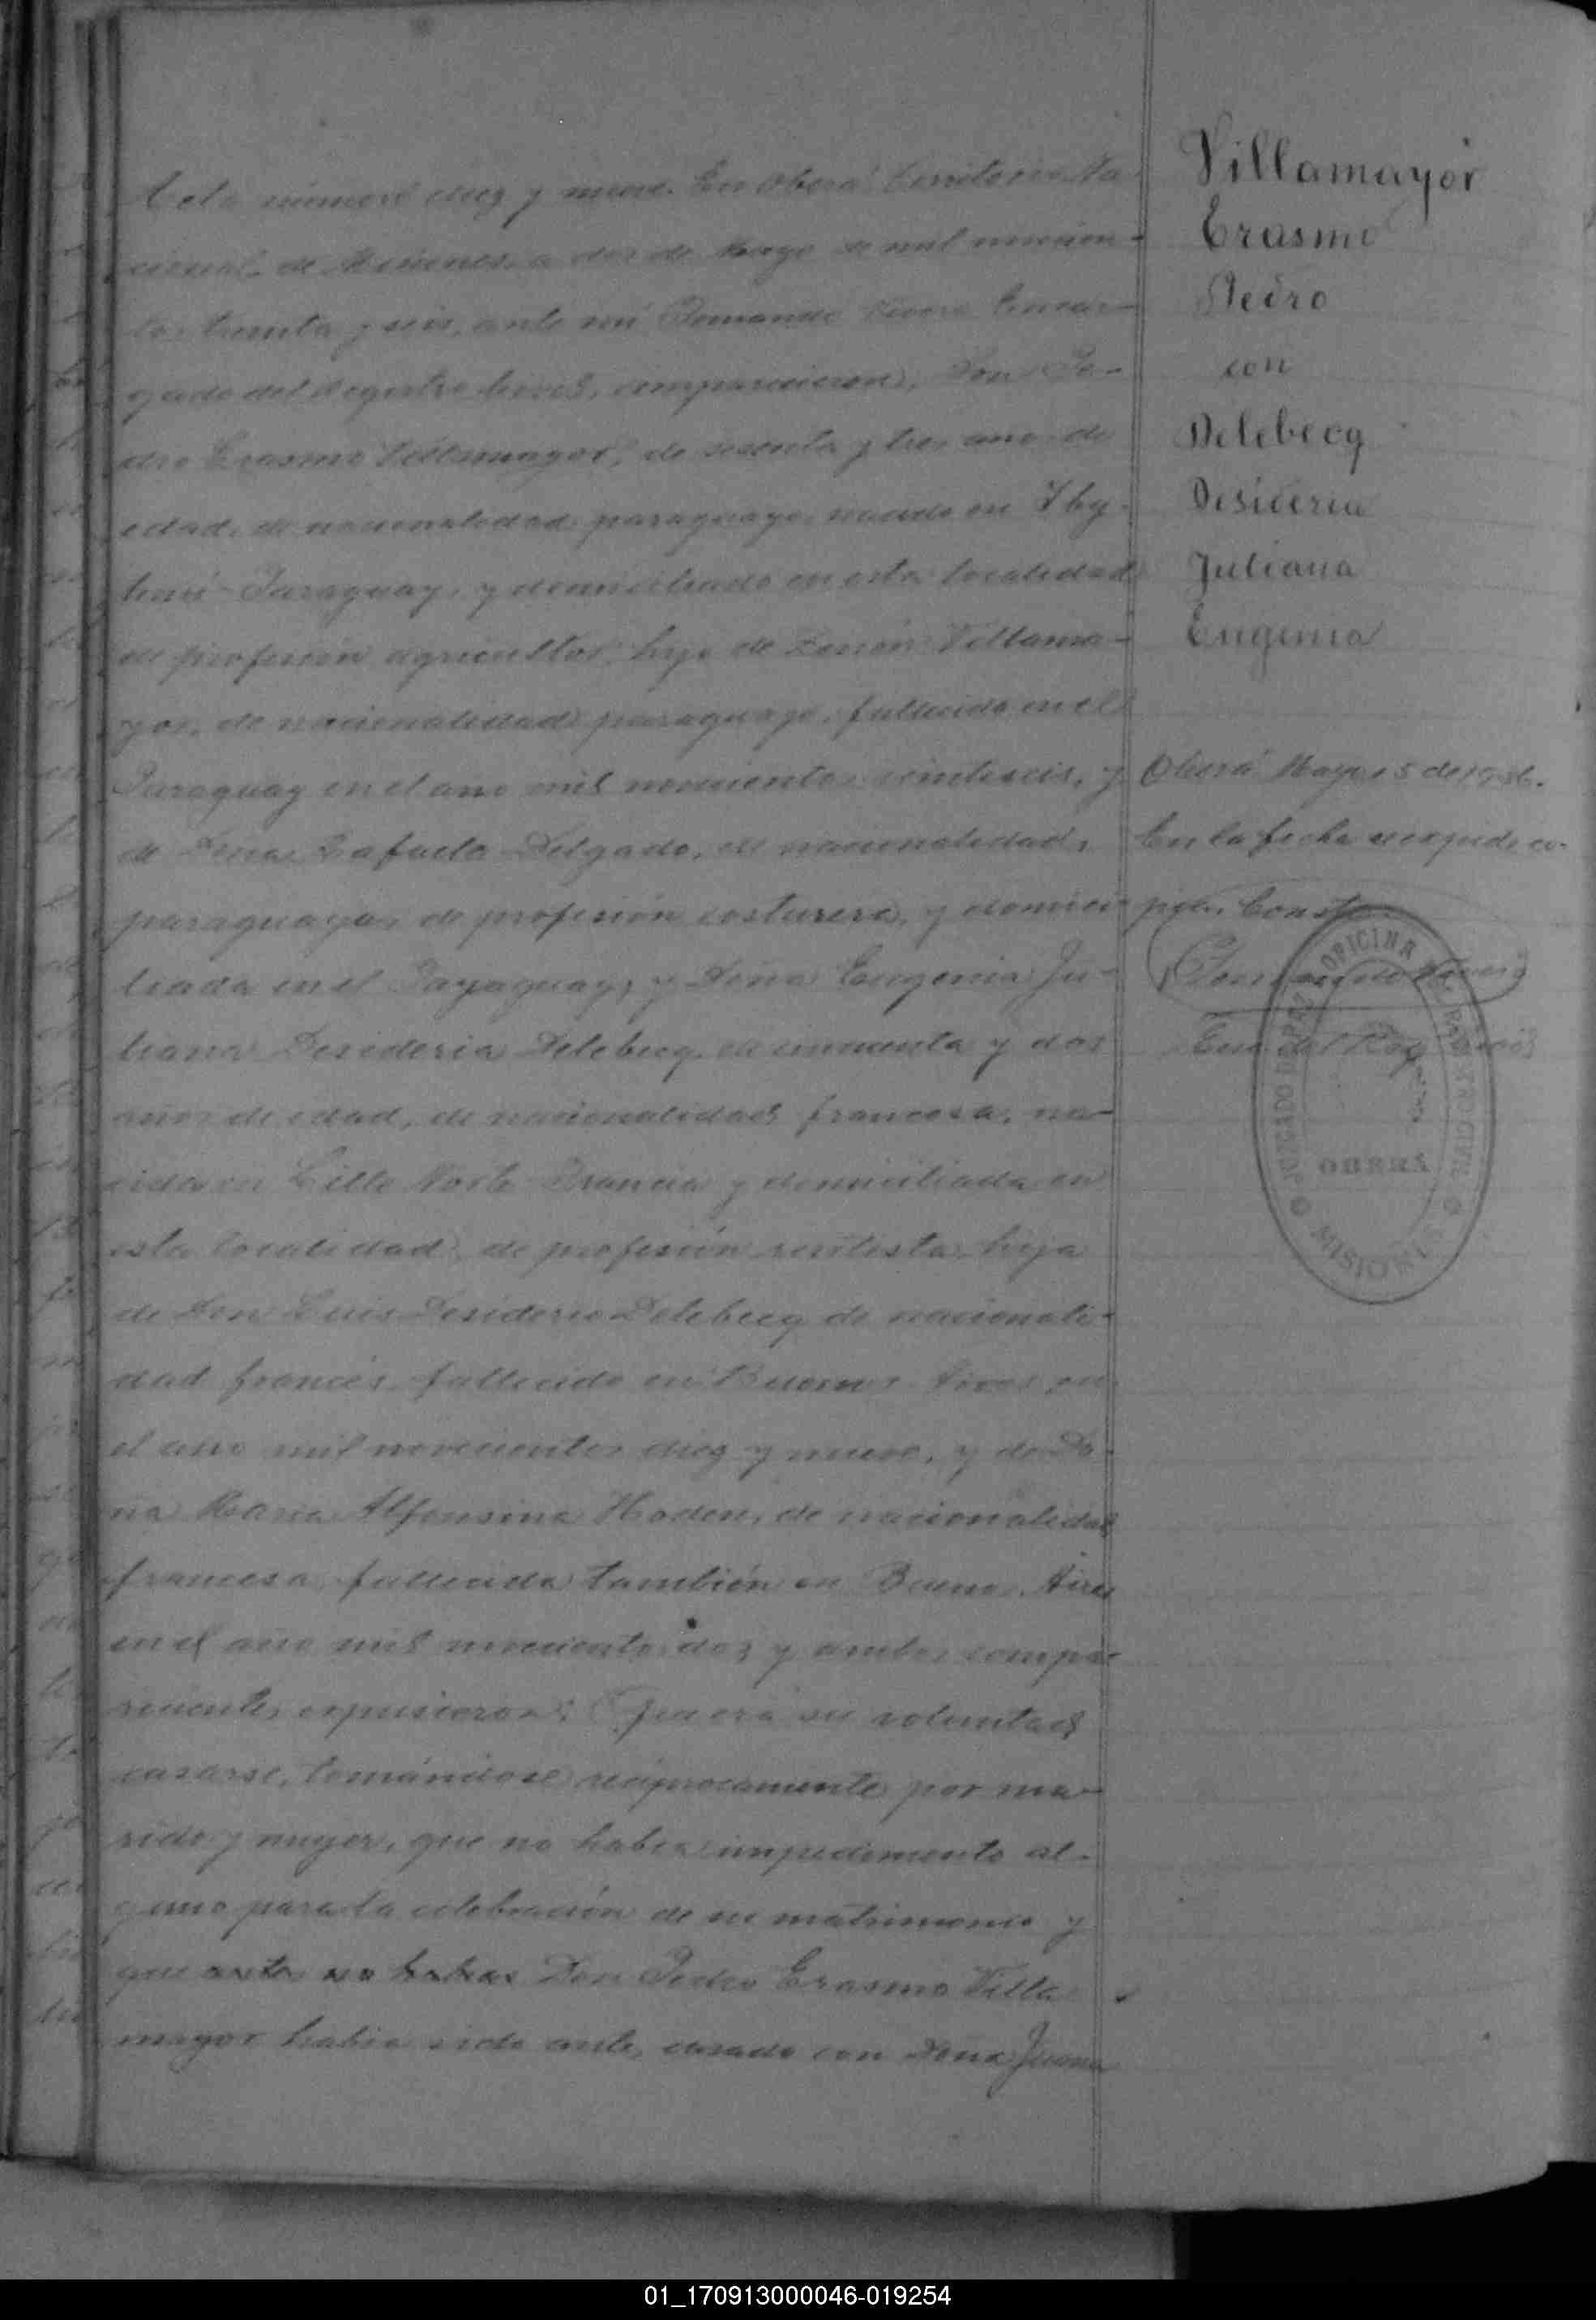 Acta número diez y nueve. En Oberá Territorio Na-
cional de Misiones, a dos de Mayo de mil novecien-
tos treinta y seis, ante mí Encar-
gado del Registro Civil, comparecieron, Don Pe-
dro Erasmo Villamayor, de sesenta y tres anos de
edad, de nacionalidad paraguayo, nacido en Yby-
Paraguay, y domiciliado en esta localidad
de profesión agricultor, hijo de Zenón Villama-
yor, de nacionalidad paraguayo, fallecido en el
Paraguay en el ano mil novecientos veintiseis, y
de Dona Rafaela Delgado, de nacionalidad,
paraguaya, de profesión costurera, y domici-
liada en el Payaguay, y Dona Eugenia Ju-
liana Desideria Delebecq, de cincuenta y dos
años de edad, de nacionalidad francesa, na-
cida en Lille Norte Francia y domiciliada en
esta localidad, de profesión rentista, hija
de Don Luis Desiderio Delebecq de nacionali-
dad francés, fallecido en Buenos Aires en
el ano mil novecientos diez y nueve, y de Do-
na Maria Alfonsina de nacionalidad
francesa, fallecida también en Buenos Aires
en el ano mil novecientos dos y ambos compa-
recientes expusieron: Que era su voluntad
casarse, tomándose reciprocamente por ma-
rido y mujer, que no habia impedimento al-
guno para la celebración de su matrimonio y
que antes no habian Don Pedro Erasmo Villa
mayor habia sido antes casado con Dona Juana
Villamayor
Erasmo
Pedro
con
Delebecq
Desideria
Juliana
Eugenia
Oberá Mayo 5 de 1936.
En la fecha se expide co-
pia. Conste
Enc. del Reg. Civil
JUZGADO DE PAZ Y OFICINA DEL REGISTRO CIVIL
OBERÁ
MISIONES
01_170913000046-019254